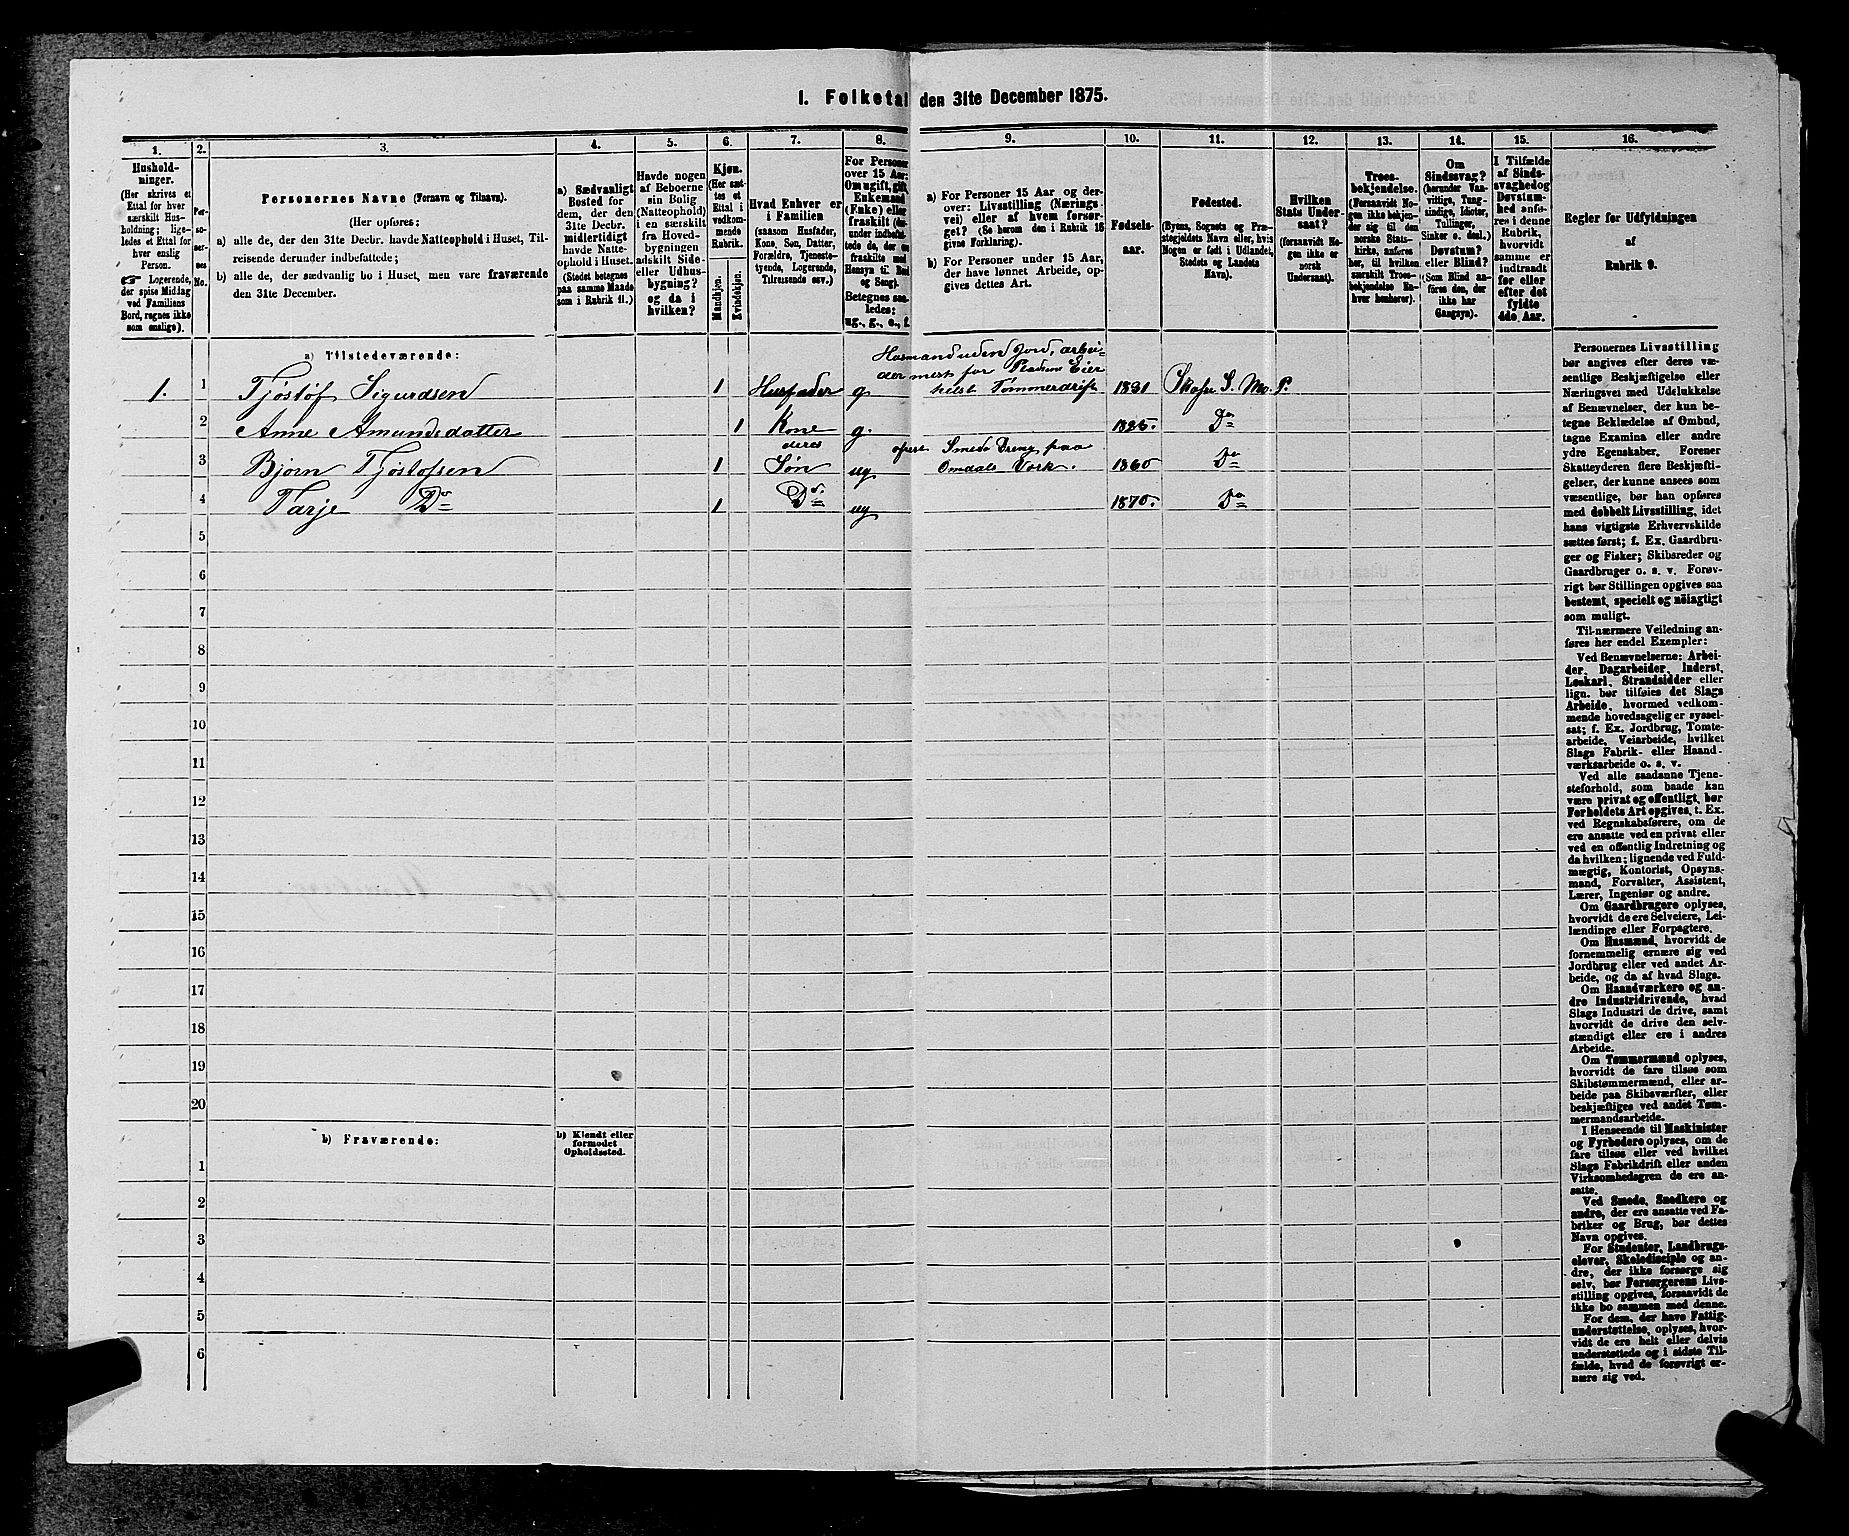 1. Folketal den 31te December 1875.
1.
Hushold-
ninger.
(Her skrives et
Ettal for hver
særskilt Hus-
holdning; lige-
ledes et Ettal for
hver enslig
Person.
☞ Logerende,
der spise Middag
ved Familiens
Bord, regnes ikke
som enslige).
2.
Per-
so-
ner-
nes
No.
3.
Personernes Navne (Fornavn og Tilnavn).
(Her opføres:
a) alle de, der den 31te Decbr. havde Natteophold i Huset, Til-
reisende derunder indbefattede;
b) alle de, der sædvanlig bo i Huset, men vare fraværende
den 31te December.
4.
a) Sædvanligt
Bosted for
dem, der den
31te Decbr.
midlertidigt
havde Natte-
ophold i Huset.
(Stedet betegnes
paa samme Maade
som i Rubrik 11.)
5.
Havde nogen
af Beboerne
sin Bolig
(Natteophold)
i en særskilt
fra Hoved-
bygningen
adskilt Side-
eller Udhus-
bygning?
og da i
hvilken?
6.
Kjøn.
(Her sæt-
tes et
Ettal i
vedkom-
mende
Rubrik.
Mandkjøn.
Kvindekjøn.
7.
Hvad Enhver er
i Familien
(saasom Husfader,
Kone, Søn, Datter,
Forældre, Tjeneste-
tyende, Logerende,
Tilreisende osv.)
8.
For Personer
over 15 Aar:
Om ugift, gift,
Enkemand
(Enke) eller
fraskilt (der-
under indbefat-
tede de, der ere
fraskilte med
Hensyn til Bord
og Seng).
Betegnes saa-
ledes:
ug., g., e., f.
9.
a) For Personer 15 Aar og der-
over: Livsstilling (Nærings-
vei) eller af hvem forsør-
get? (Se herom den i Rubrik 16
givne Forklaring).
b) For Personer under 15 Aar,
der have lønnet Arbeide, op-
gives dettes Art.
10.
Fødsels-
aar.
11.
Fødested.
(Byens, Sognets og Præ-
stegjeldets Navn eller, hvis
Nogen er født i Udlandet,
Stedets og Landets
Navn).
12.
Hvilken
Stats Under-
saat?
(forsaavidt No-
gen ikke er
norsk
Undersaat).
13.
Troes-
bekjendelse.
(Forsaavidt No-
gen ikke bekjen-
der sig til den
norske Stats-
kirke, anføres
her, til hvilken
særskilt Troes-
bekjendelse En-
hver henhører).
14.
Om
Sindssvag?
(herunder Van-
vittige, Tung-
sindige, Idioter,
Tullinger,
Sinker o. desl.)
Døvstum?
eller Blind?
(Som Blind an-
føres den, der
ikke har
Gangsyn).
15.
I Tilfælde
af Sinds-
svaghed og
Døvstum-
hed anfø-
res i denne
Rubrik,
hvorvidt
samme er
indtraadt
før eller
efter det
fyldte
4de Aar.
16.
Regler for Udfyldningen
af
Rubrik 9.
a) Tilstedeværende:
Husmand uden Jord, arbei-
der mest for Pladsens Eier
1. 1 Tjøstøf Sigurdsen 1 Husfader g helst Tømmerdrift 1831 Skafse S. Mo P.
2 Anne Amundsdatter 1 Kone g. 1825. Do
deres ofvst Smede Dreng paa
3 Bjørn Tjøstofsen 1 Søn ug Omdals Værk. 1860 Do
4 Tarje Do 1 Do. ug 1870. Do
5
6
7
8
9
10
11
12
13
14
15
16
17
18
19
20
b) Fraværende:
b) Kjendt eller
formodet
Opholdssted.
1
2
3
4
5
6
Personernes Livsstilling
bør angives efter deres væ-
sentlige Beskjæftigelse eller
Næringsvei med Udelukkelse
af Benævnelser, der kun be-
tegne Beklædelse af Ombud,
tagne Examina eller andre
ydre Egenskaber. Forener
Skatteyderen flere Beskjæfti-
gelser, der kunne ansees som
væsentlige, bør han opføres
med dobbelt Livsstilling, idet
hans vigtigste Erhvervskilde
sættes først; f. Ex. Gaardbru-
ger og Fisker; Skibsreder og
Gaardbruger o. s. v. Forøv-
rigt bør Stillingen opgives saa
bestemt, specielt og nöiagtigt
som muligt.
Til nærmere Veiledning an-
føres her endel Exempler:
Ved Benævnelserne: Arbei-
der, Dagarbeider, Inderst,
Løskarl, Strandsidder eller
lign. bør tilføies det Slags
Arbeide, hvormed vedkom-
mende hovedsagelig er syssel-
sat; f. Ex. Jordbrug, Tomte-
arbeide, Veiarbeide, hvilket
Slags Fabrik- eller Haand-
værksarbeide o. s. v.
Ved alle saadanne Tjene-
steforhold, som baade kan
være privat og offentligt, bør
Forholdets Art opgives, t. Ex.
ved Regnskabsførere, om de
ere ansatte ved en privat eller
ved en offentlig Indretning og
da hvilken; lignende ved Fuld-
mægtig, Kontorist, Opsyns-
mand, Forvalter, Assistent,
Lærer, Ingeniør og andre.
Om Gaardbrugere oplyses,
hvorvidt de ere Selveiere, Lei-
lændinge eller Forpagtere.
Om Husmænd, hvorvidt de
fornemmelig ernære sig ved
Jordbrug eller ved andet Ar-
beide, og da af hvad Slags.
Om Haandværkere og an-
dre Industridrivende, hvad
Slags Industri de drive, samt
hvorvidt de drive den selv-
stændigt eller ere i andres
Arbeide.
Om Tømmermænd oplyses,
hvorvidt de fare tilsøs som
Skibstømmermænd, eller ar-
beide paa Skibsværfter, eller
beskjæftiges ved andet Tøm-
mermandsarbeide.
I Henseende til Maskinister
og Fyrbødere oplyses, om de
fare tilsøs eller ved hvilket
Slags Fabrikdrift eller anden
Virksomhedsgren de ere an-
satte.
Ved Smede, Snedkere og
andre, der ere ansatte ved Fa-
briker og Brug, bør dettes
Navn opgives.
For Studenter, Landbrugs-
elever, Skoledisciple og an-
dre, der ikke forsørge sig
selv, bør Forsørgerens Livs-
stilling opgives, forsaavidt de
ikke bo sammen med denne.
For dem, der have Fattig-
understøttelse, oplyses, hvor-
vidt de ere helt eller delvis
understøttede og i sidste Til-
fælde, hvad de forøvrigt er-
nære sig ved.